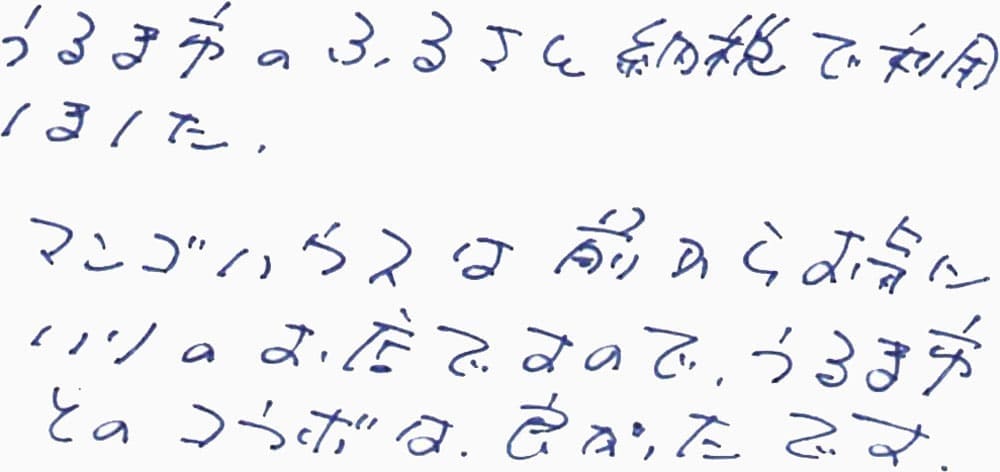 うるま市のふるさと納税で利用
しました.
マンゴハウスは前からお気に
いりのお店ですので、うるま市
とのコラボは.良かったです.